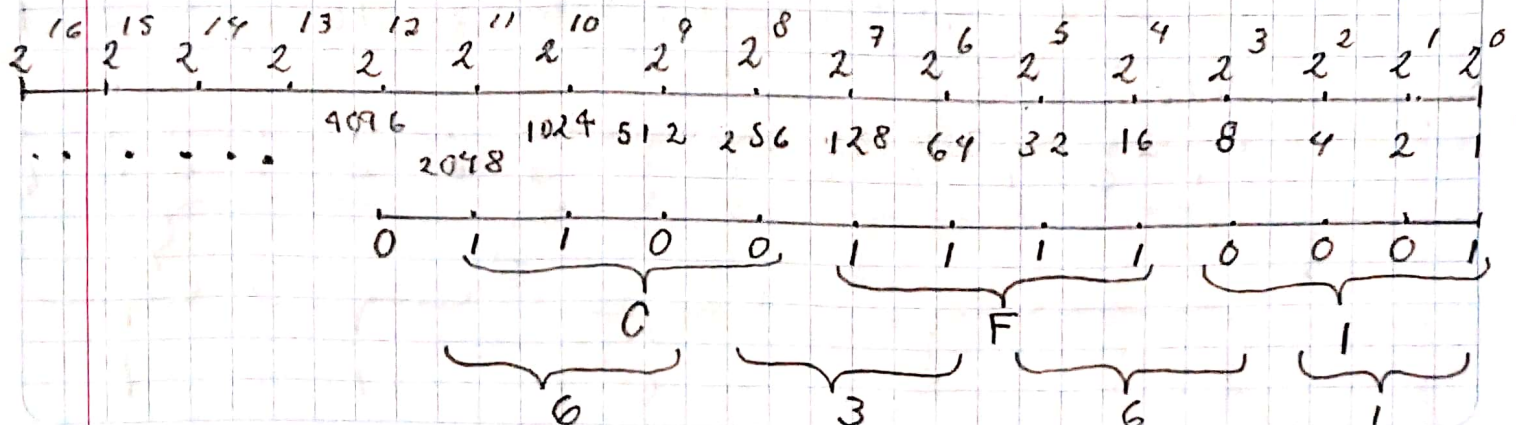 2^16 2^15 2^14 2^13 2^12 2^11 2^10 2^9 2^8 2^7 2^6 2^5 2^4 2^3 2^2 2^1 2^0
4096 2048 1024 512 256 128 64 32 16 8 4 2 1
0 1 1 0 0 1 1 1 1 0 0 0 1
C F 1
6 3 6 1